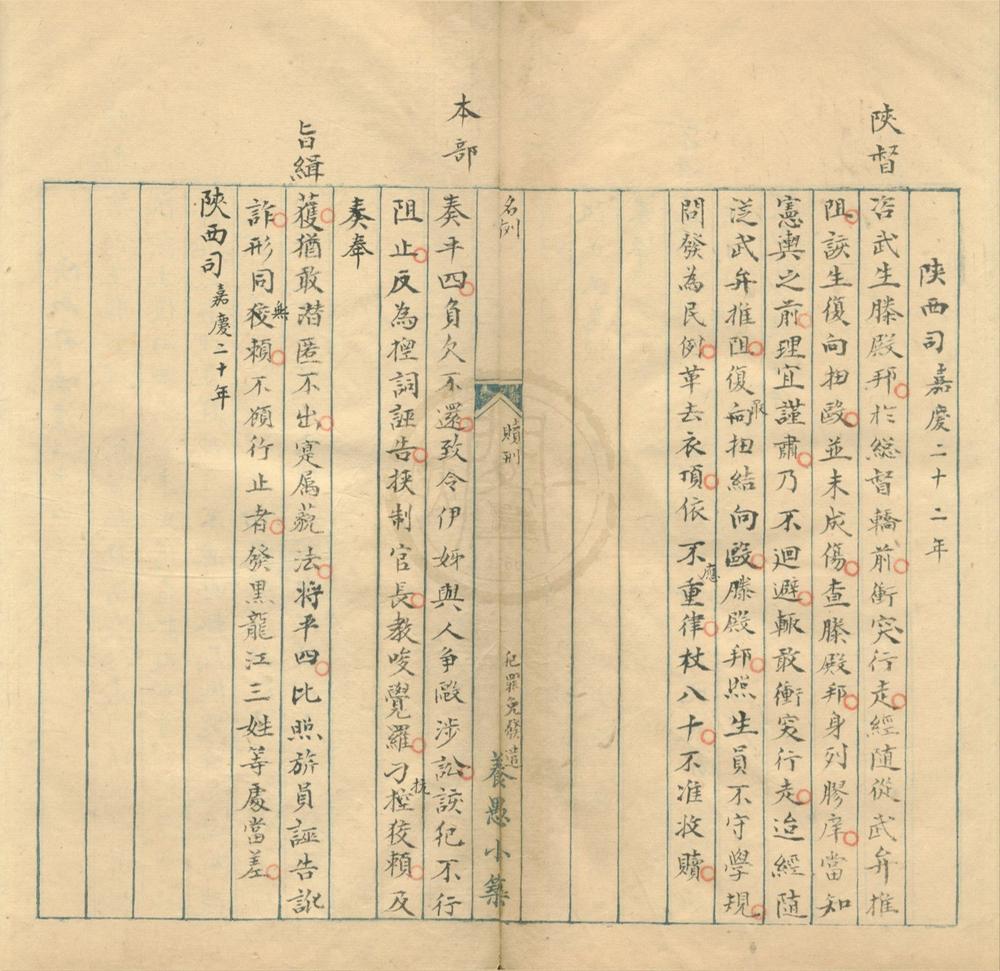 陝西司嘉慶二十二年
陝督咨武生滕殿邦於總督轎前衝突行走經隨從武弁推
阻該生復向扭毆並未成傷查滕殿邦身列膠庠當知
憲輿之前理宜謹肅乃不迴避輒敢衝突行走迨經隨
從武弁推阻復向扭結向毆滕殿邦照生員不守學規
問發為民例革去衣項依不應重律杖八十不准收贖
名例
贖刑
犯罪免發遣
養愚小築
本部
奏平四負欠不還致令伊姪與人爭毆涉訟該犯不行
阻止反為捏詞誣告挾制官長教唆覺羅刁控抗狡賴及
奏奉
旨緝獲猶敢潛匿不出寔屬藐法將平四比照旂員誣告訛
詐形同無狡賴不顧行止者發黑龍江三姓等處當差
陝西司嘉慶二十年